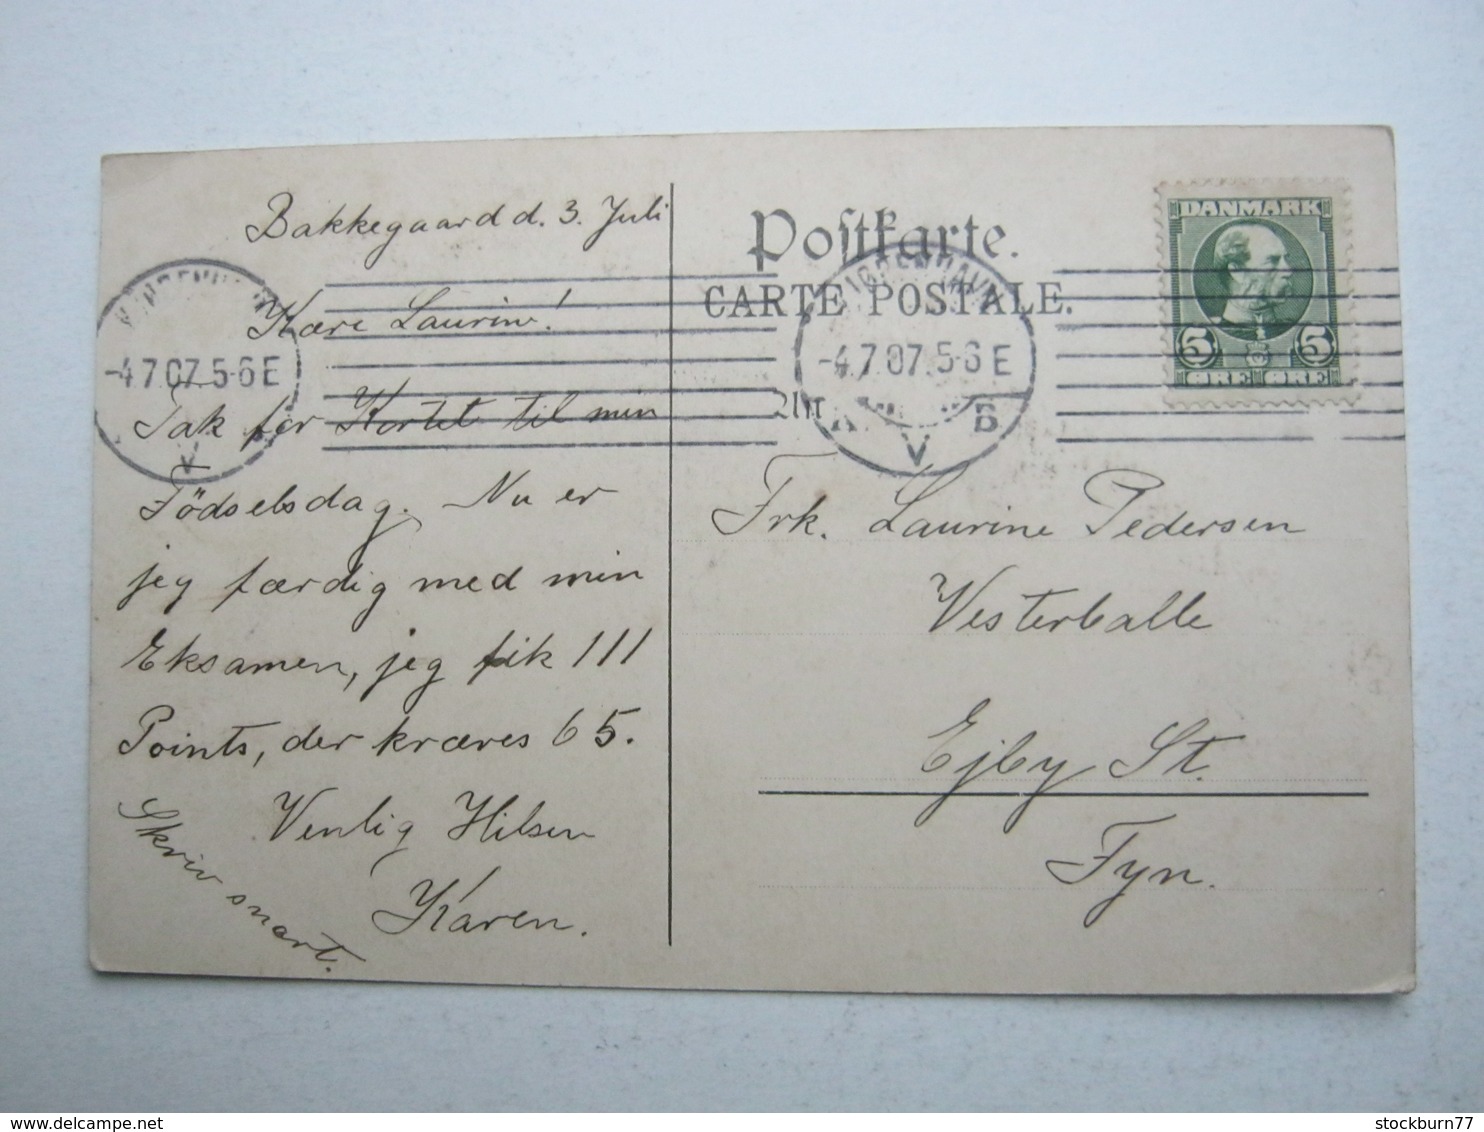 Bakkegaard d. 3. Juli
Kære Laurine!
Tak for Kortet til min
Födselsdag. Nu er
jeg færdig med min
Eksamen, jeg fik 111
Points, der kræves 65.
Venlig Hilsen
Karen.
Skriv snart.
-4.7.07.5-6E
V
Postkarte.
CARTE POSTALE.
KJØBENHAVN
-4.7.07.5-6E
V
B
DANMARK
5 5
ØRE ØRE
Frk. Laurine Pedersen
Vesterballe
Ejby St.
Fyn.
stockburn77